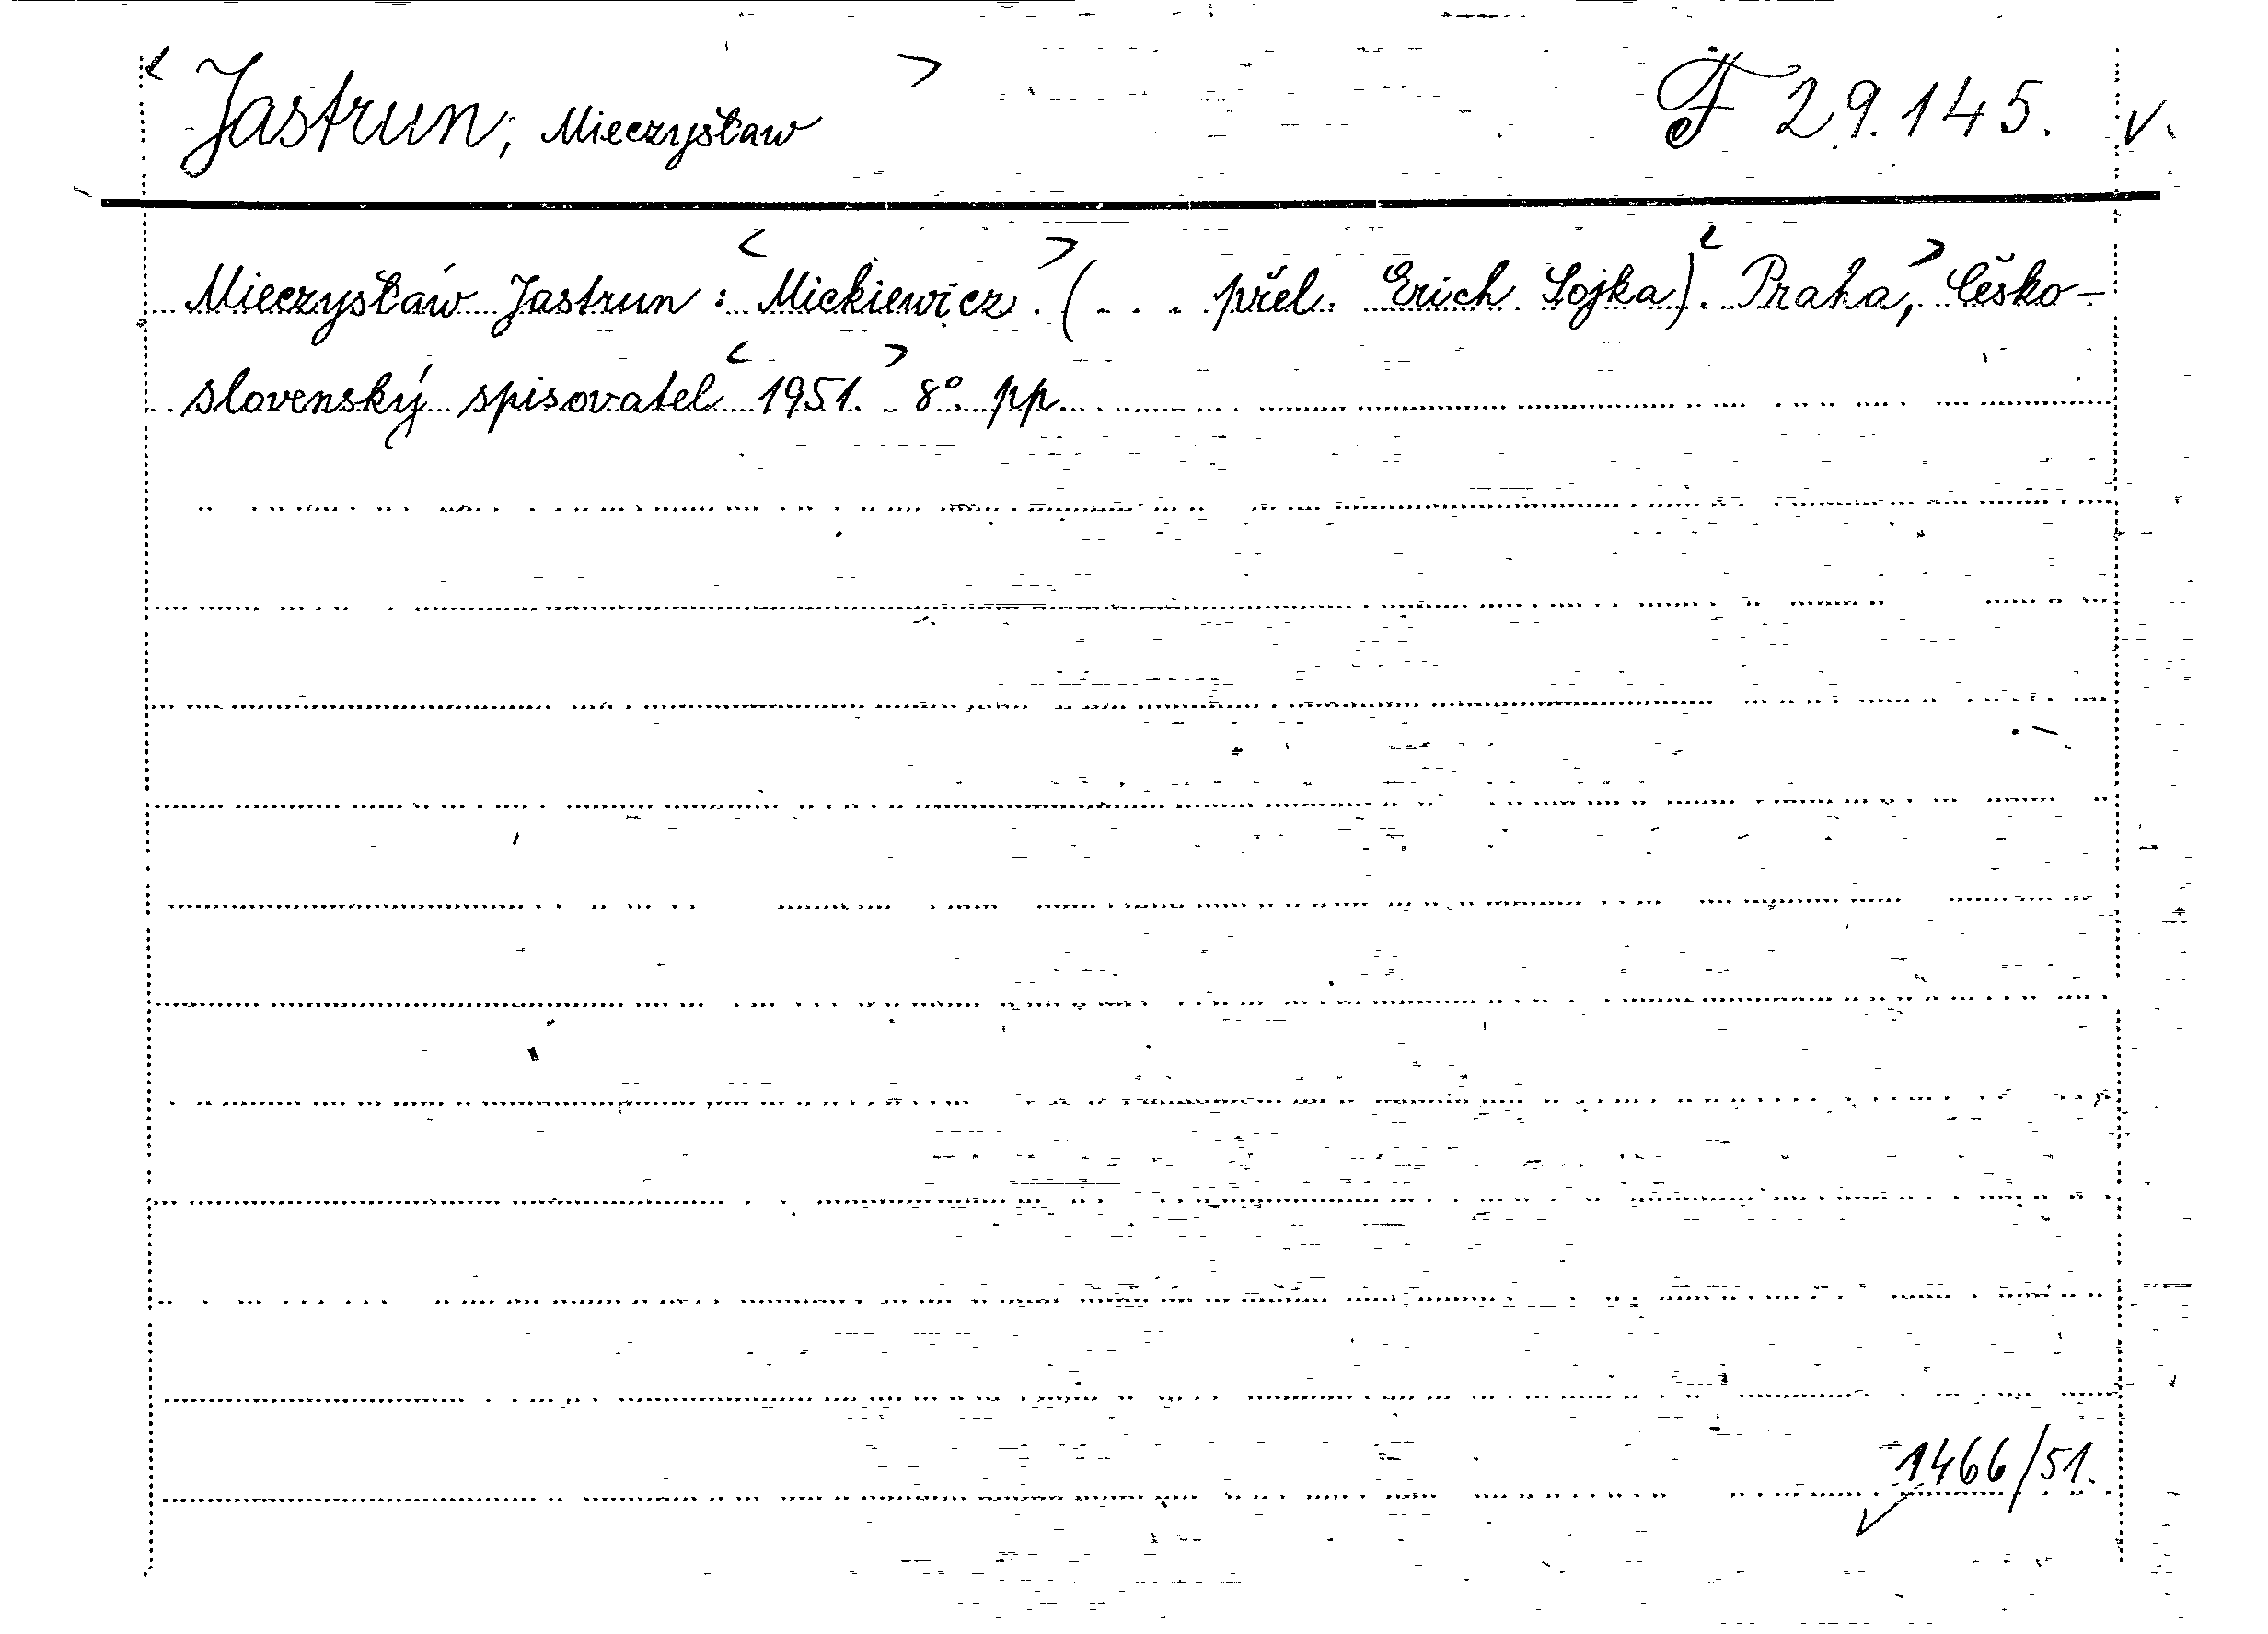 <Jastrun, Mieczysław> F 29.145. v.
Mieczysław Jastrun: <Mickiewicz>. (... přel. Erich Sojka). <Praha,> Česko-
slovenský spisovatel <1951.> 8° pp.
1466/51.